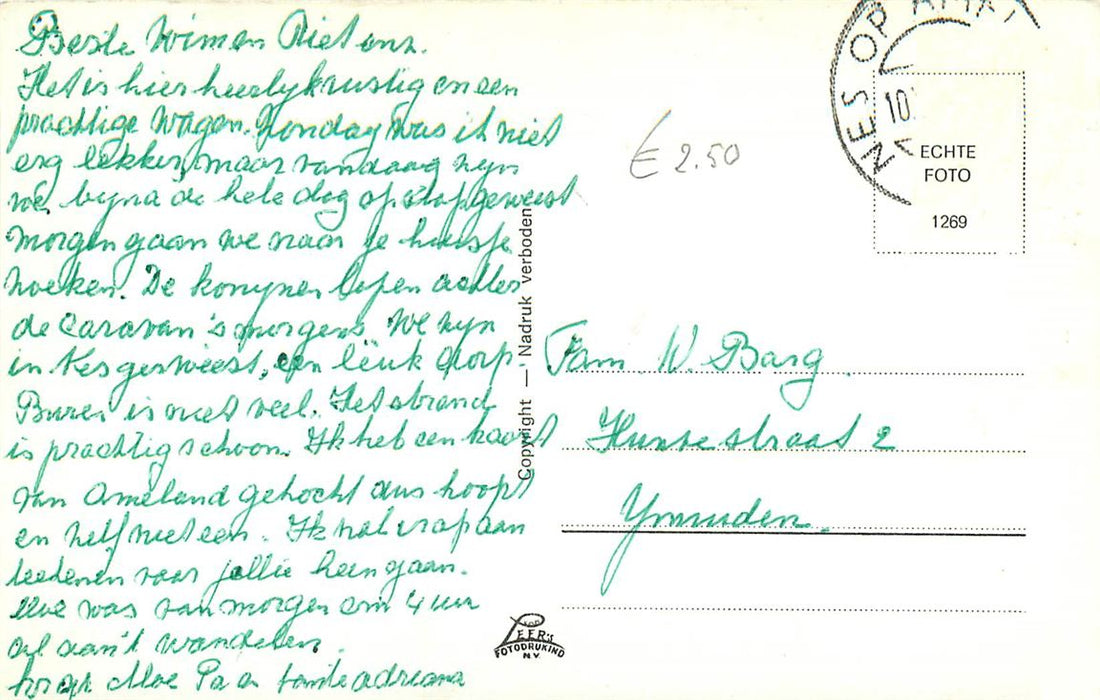 Beste Wim en Riet enz.
Het is hier heerlyk rustig en een
prachtige wagen. Zondag was it niet
erg lekker, maar vandaag zyn
we byna de hele dag op stap geweest
morgen gaan we naar je huisje
zoeken. De konynen lopen achter
de caravan 's morgens. We zyn
in Nes geweest, een leuk dorp.
Buren is niet veel. Het strand
is prachtig schoon. Ik heb een kaart
van Ameland gekocht dus koopt
er zelf niet een. Ik zal er op aan
tekenen waar jullie heen gaan.
Moe was van morgen om 4 uur
al aan't wandelen.
Moe Pa en tante adriana
NES OP AMEL
10.
ECHTE
FOTO
1269
€ 2.50
Copyright — Nadruk verboden
Fam. W. Barg.
Hunsestraat 2
Ymuiden.
van
LEER'S
FOTODRUKIND
N.V.